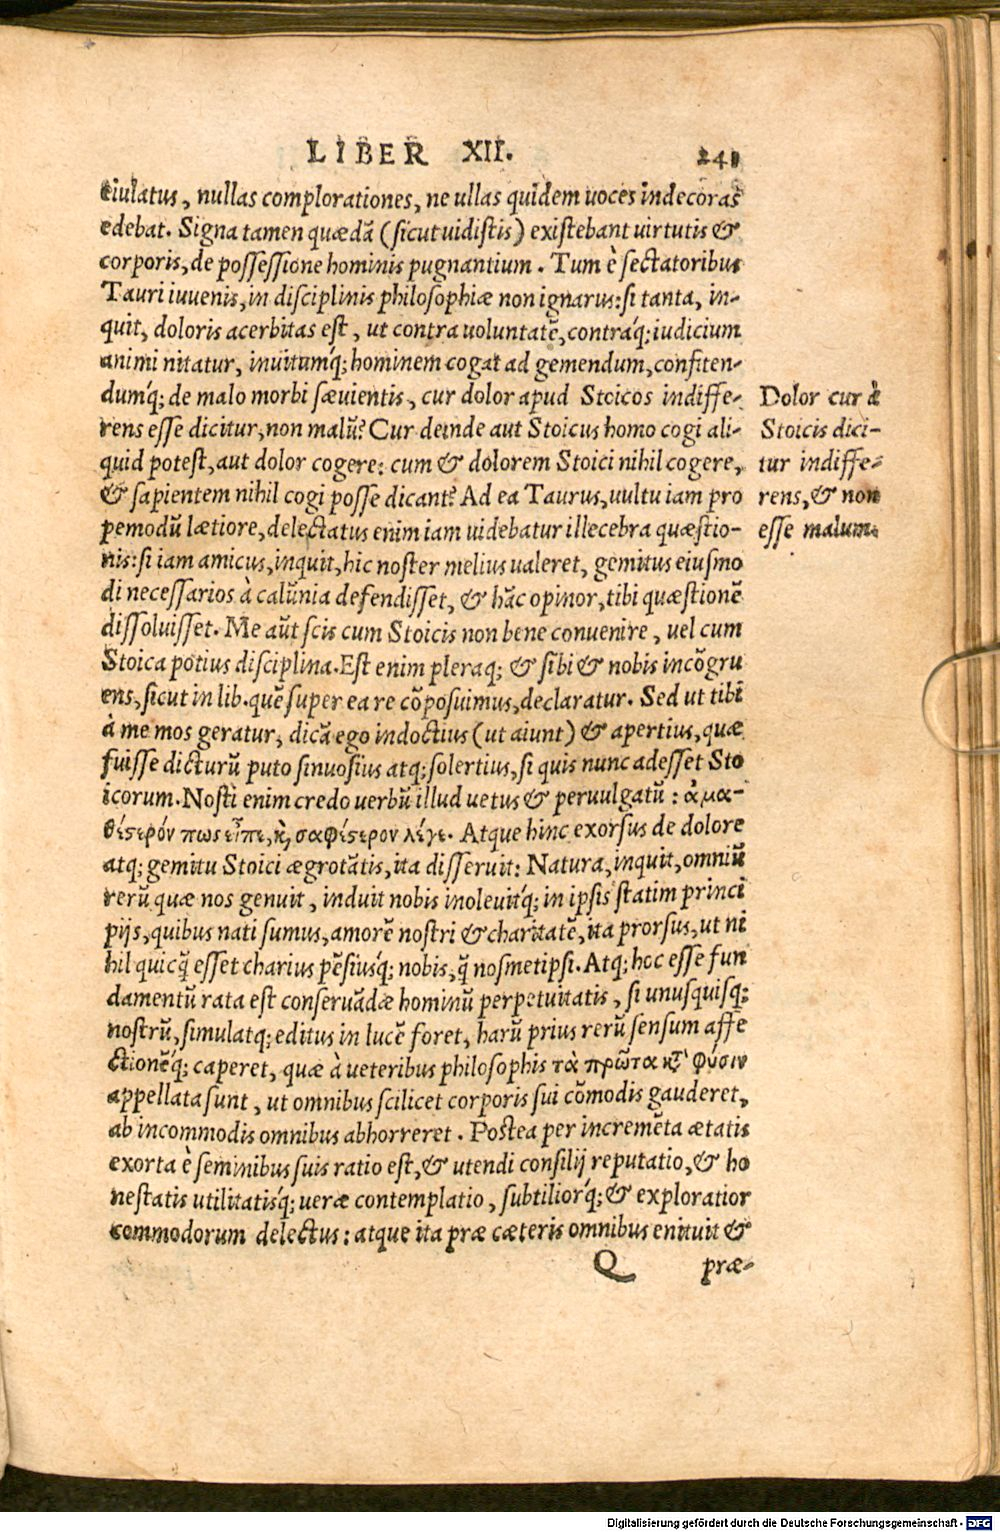 LIBER XII. 241
eiulatus, nullas complorationes, ne ullas quidem uoces indecoras
edebat. Signa tamen quædã (sicut uidistis) existebant uirtutis &
corporis, de possessione hominis pugnantium. Tum è sectatoribus
Tauri iuuenis, in disciplinis philosophiæ non ignarus: si tanta, in-
quit, doloris acerbitas est, ut contra uoluntatẽ, contraq́; iudicium
animi nitatur, inuitumq́; hominem cogat ad gemendum, confiten-
dumq́; de malo morbi sæuientis, cur dolor apud Stoicos indiffe-
rens esse dicitur, non malũ? Cur deinde aut Stoicus homo cogi ali-
quid potest, aut dolor cogere: cum & dolorem Stoici nihil cogere,
& sapientem nihil cogi posse dicant? Ad ea Taurus, uultu iam pro
pemodũ lætiore, delectatus enim iam uidebatur illecebra quæstio-
nis: si iam amicus, inquit, hic noster melius ualeret, gemitus eiusmo
di necessarios à calũnia defendisset, & hãc opinor, tibi quæstionẽ
dissoluisset. Me aũt scis cum Stoicis non bene conuenire, uel cum
Stoica potius disciplina. Est enim pleraq; & sibi & nobis incõgru
ens, sicut in lib. quẽ super ea re cõposuimus, declaratur. Sed ut tibi
à me mos geratur, dicã ego indoctius (ut aiunt) & apertius, quæ
fuisse dicturũ puto sinuosius atq; solertius, si quis nunc adesset Sto
icorum. Nosti enim credo uerbũ illud uetus & peruulgatũ: ἀμα-
θέστερόν πως εἶπε, κὴ σαφέστερον λέγε. Atque hinc exorsus de dolore
atq; gemitu Stoici ægrotãtis, ita disseruit: Natura, inquit, omniũ
rerũ quæ nos genuit, induit nobis inoleuitq́; in ipsis statim princi
pijs, quibus nati sumus, amorẽ nostri & charitatẽ, ita prorsus, ut ni
hil quicq̃ esset charius pẽsiusq́; nobis, q̃ nosmetipsi. Atq; hoc esse fun
damentũ rata est conseruãdæ hominũ perpetuitatis, si unusquisq;
nostrũ, simulatq; editus in lucẽ foret, harũ prius rerũ sensum affe
ctionẽq́; caperet, quæ à ueteribus philosophis τὰ πρῶτα κτ̀ φύσιν
appellata sunt, ut omnibus scilicet corporis sui cõmodis gauderet,
ab incommodis omnibus abhorreret. Postea per incremẽta ætatis
exorta è seminibus suis ratio est, & utendi consilij reputatio, & ho
nestatis utilitatisq́; ueræ contemplatio, subtiliorq́; & exploratior
commodorum delectus: atque ita præ cæteris omnibus enituit &
Q præ-
Dolor cur à
Stoicis dici-
tur indiffe-
rens, & non
esse malum.
Digitalisierung gefördert durch die Deutsche Forschungsgemeinschaft - DFG